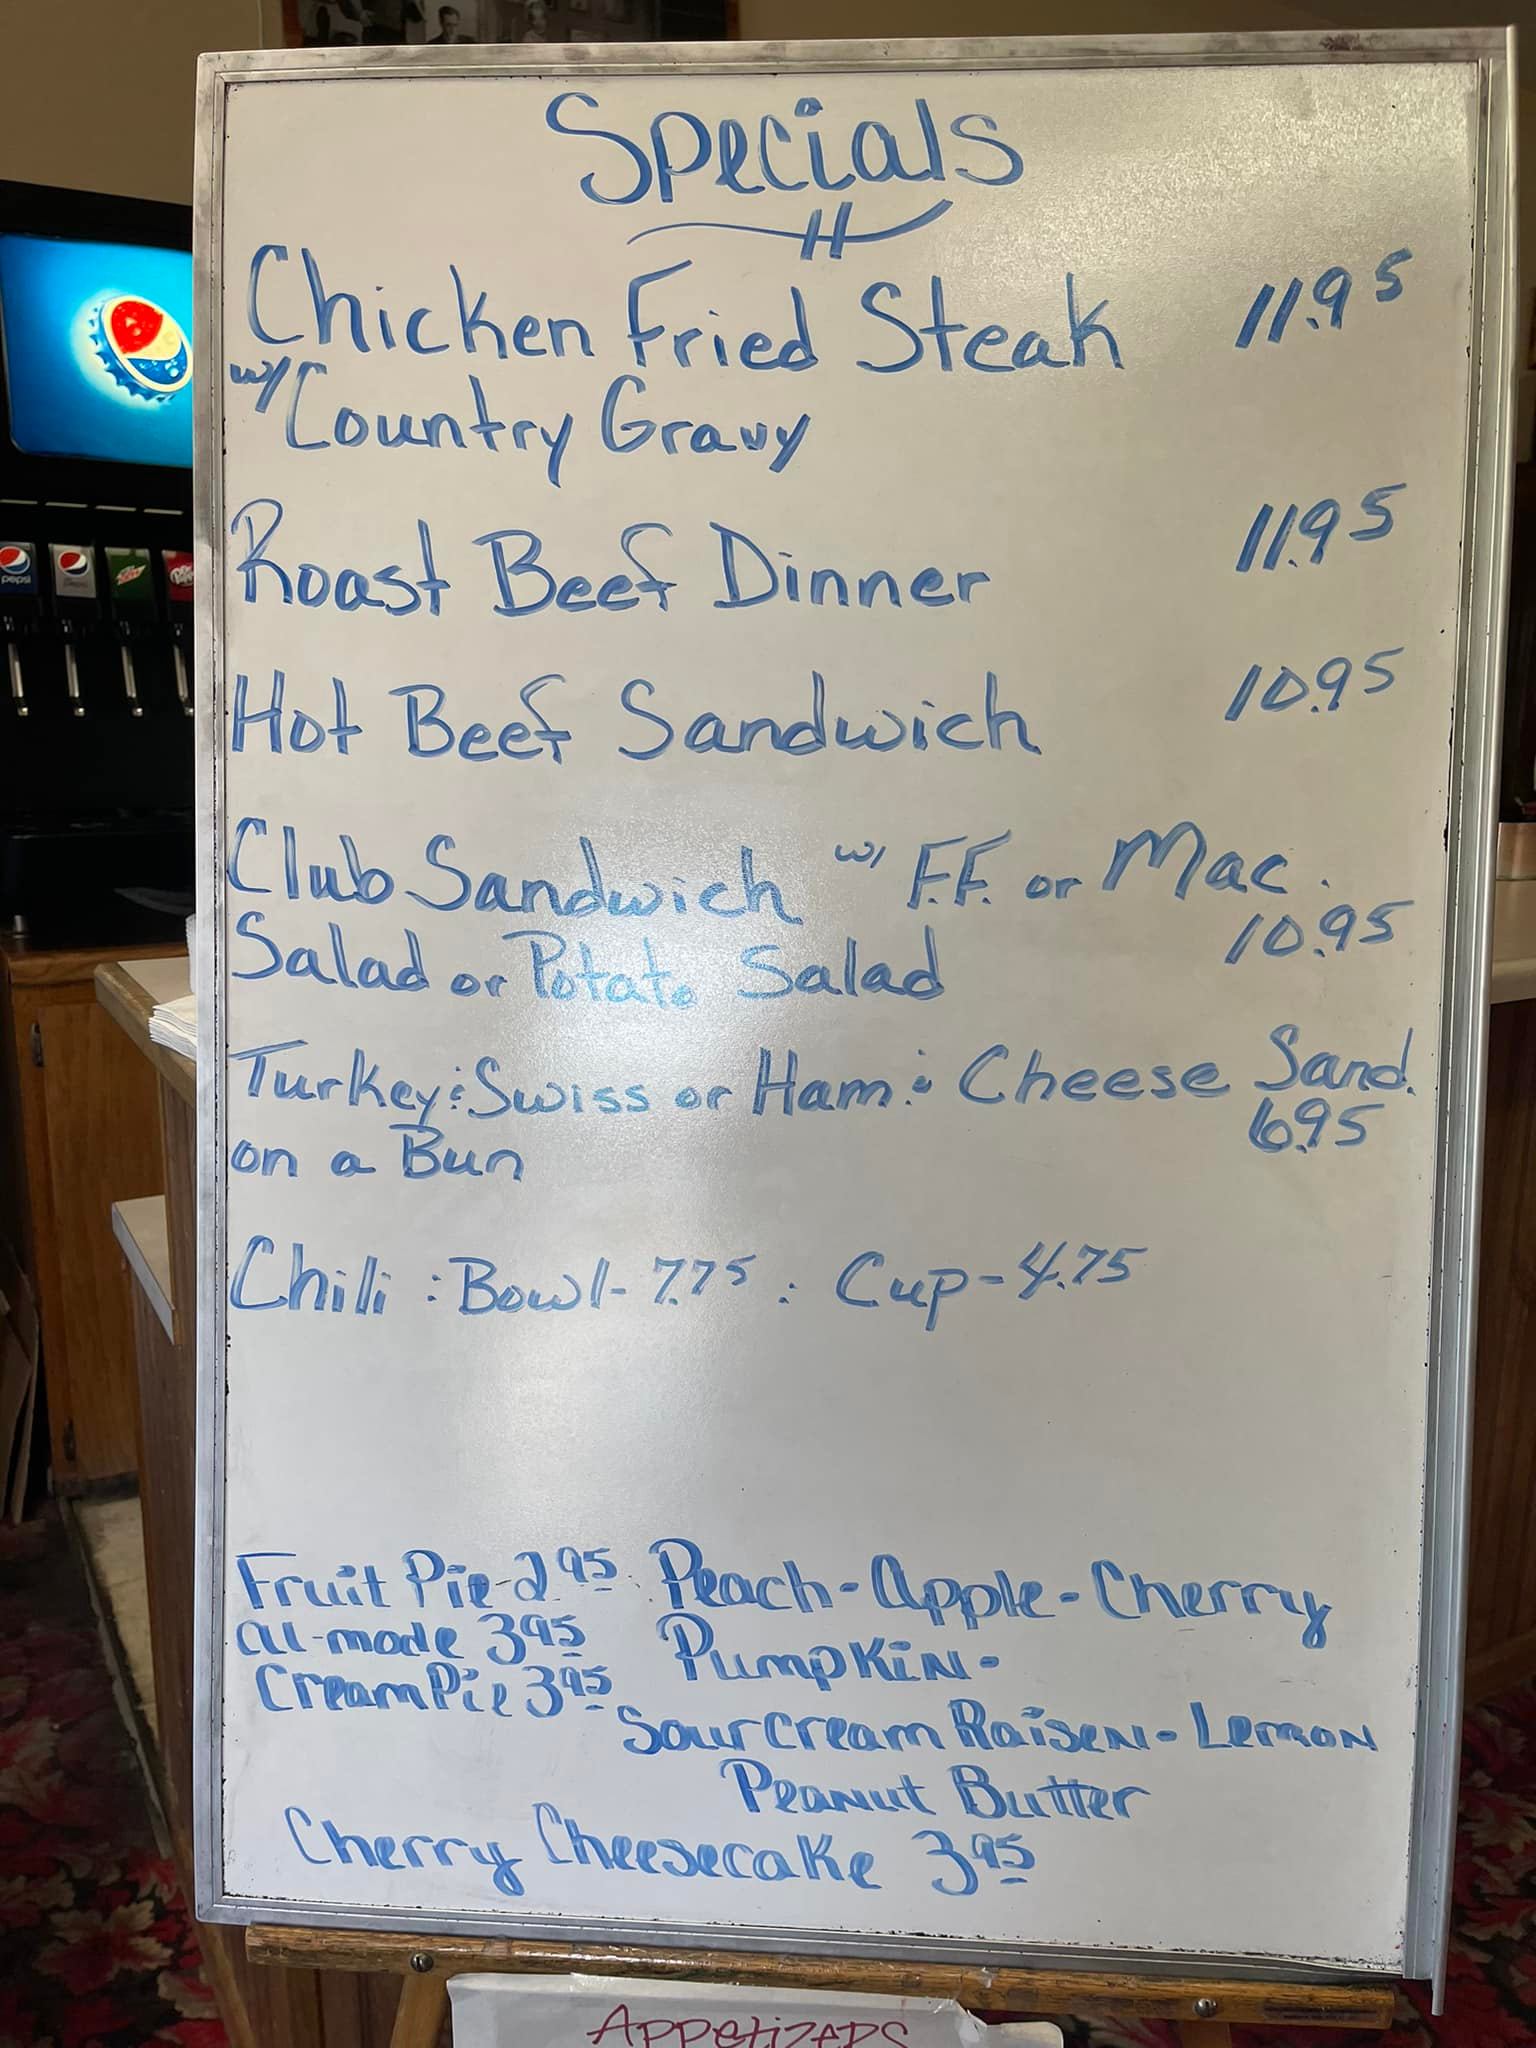 Specials
Chicken Fried Steak 11.95
w/ Country Gravy
Roast Beef Dinner 11.95
Hot Beef Sandwich 10.95
Club Sandwich w/ F.F. or Mac.
Salad or Potato Salad 10.95
Turkey & Swiss or Ham & Cheese Sand.
on a Bun 6.95
Chili : Bowl - 7.75 : Cup - 4.75
Fruit Pie 2.95 Peach - Apple - Cherry
al-mode 3.95 Pumpkin -
Cream Pie 3.95
Sour Cream Raisen - Lemon
Peanut Butter
Cherry Cheesecake 3.95
Appetizers
pepsi